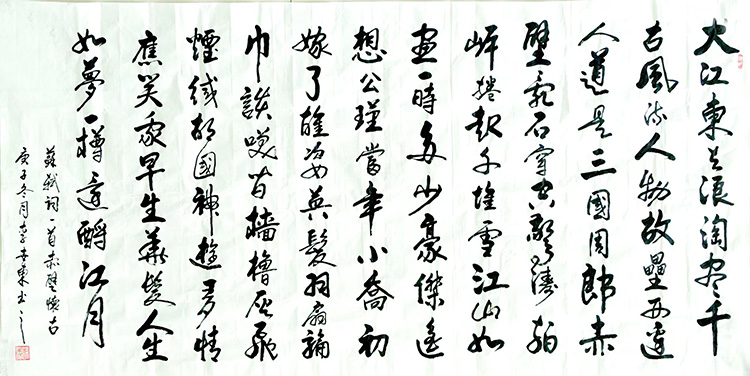 大江東去浪淘盡千
古風流人物故壘西邊
人道是三國周郎赤
壁亂石穿空驚濤拍
岸捲起千堆雪江山如
畫一時多少豪傑遙
想公瑾當年小喬初
嫁了雄姿英髮羽扇綸
巾談笑間檣櫓灰飛
煙滅故國神遊多情
應笑我早生華髮人生
如夢一樽還酹江月
蘇軾詞一首赤壁懷古
庚子冬月李東書